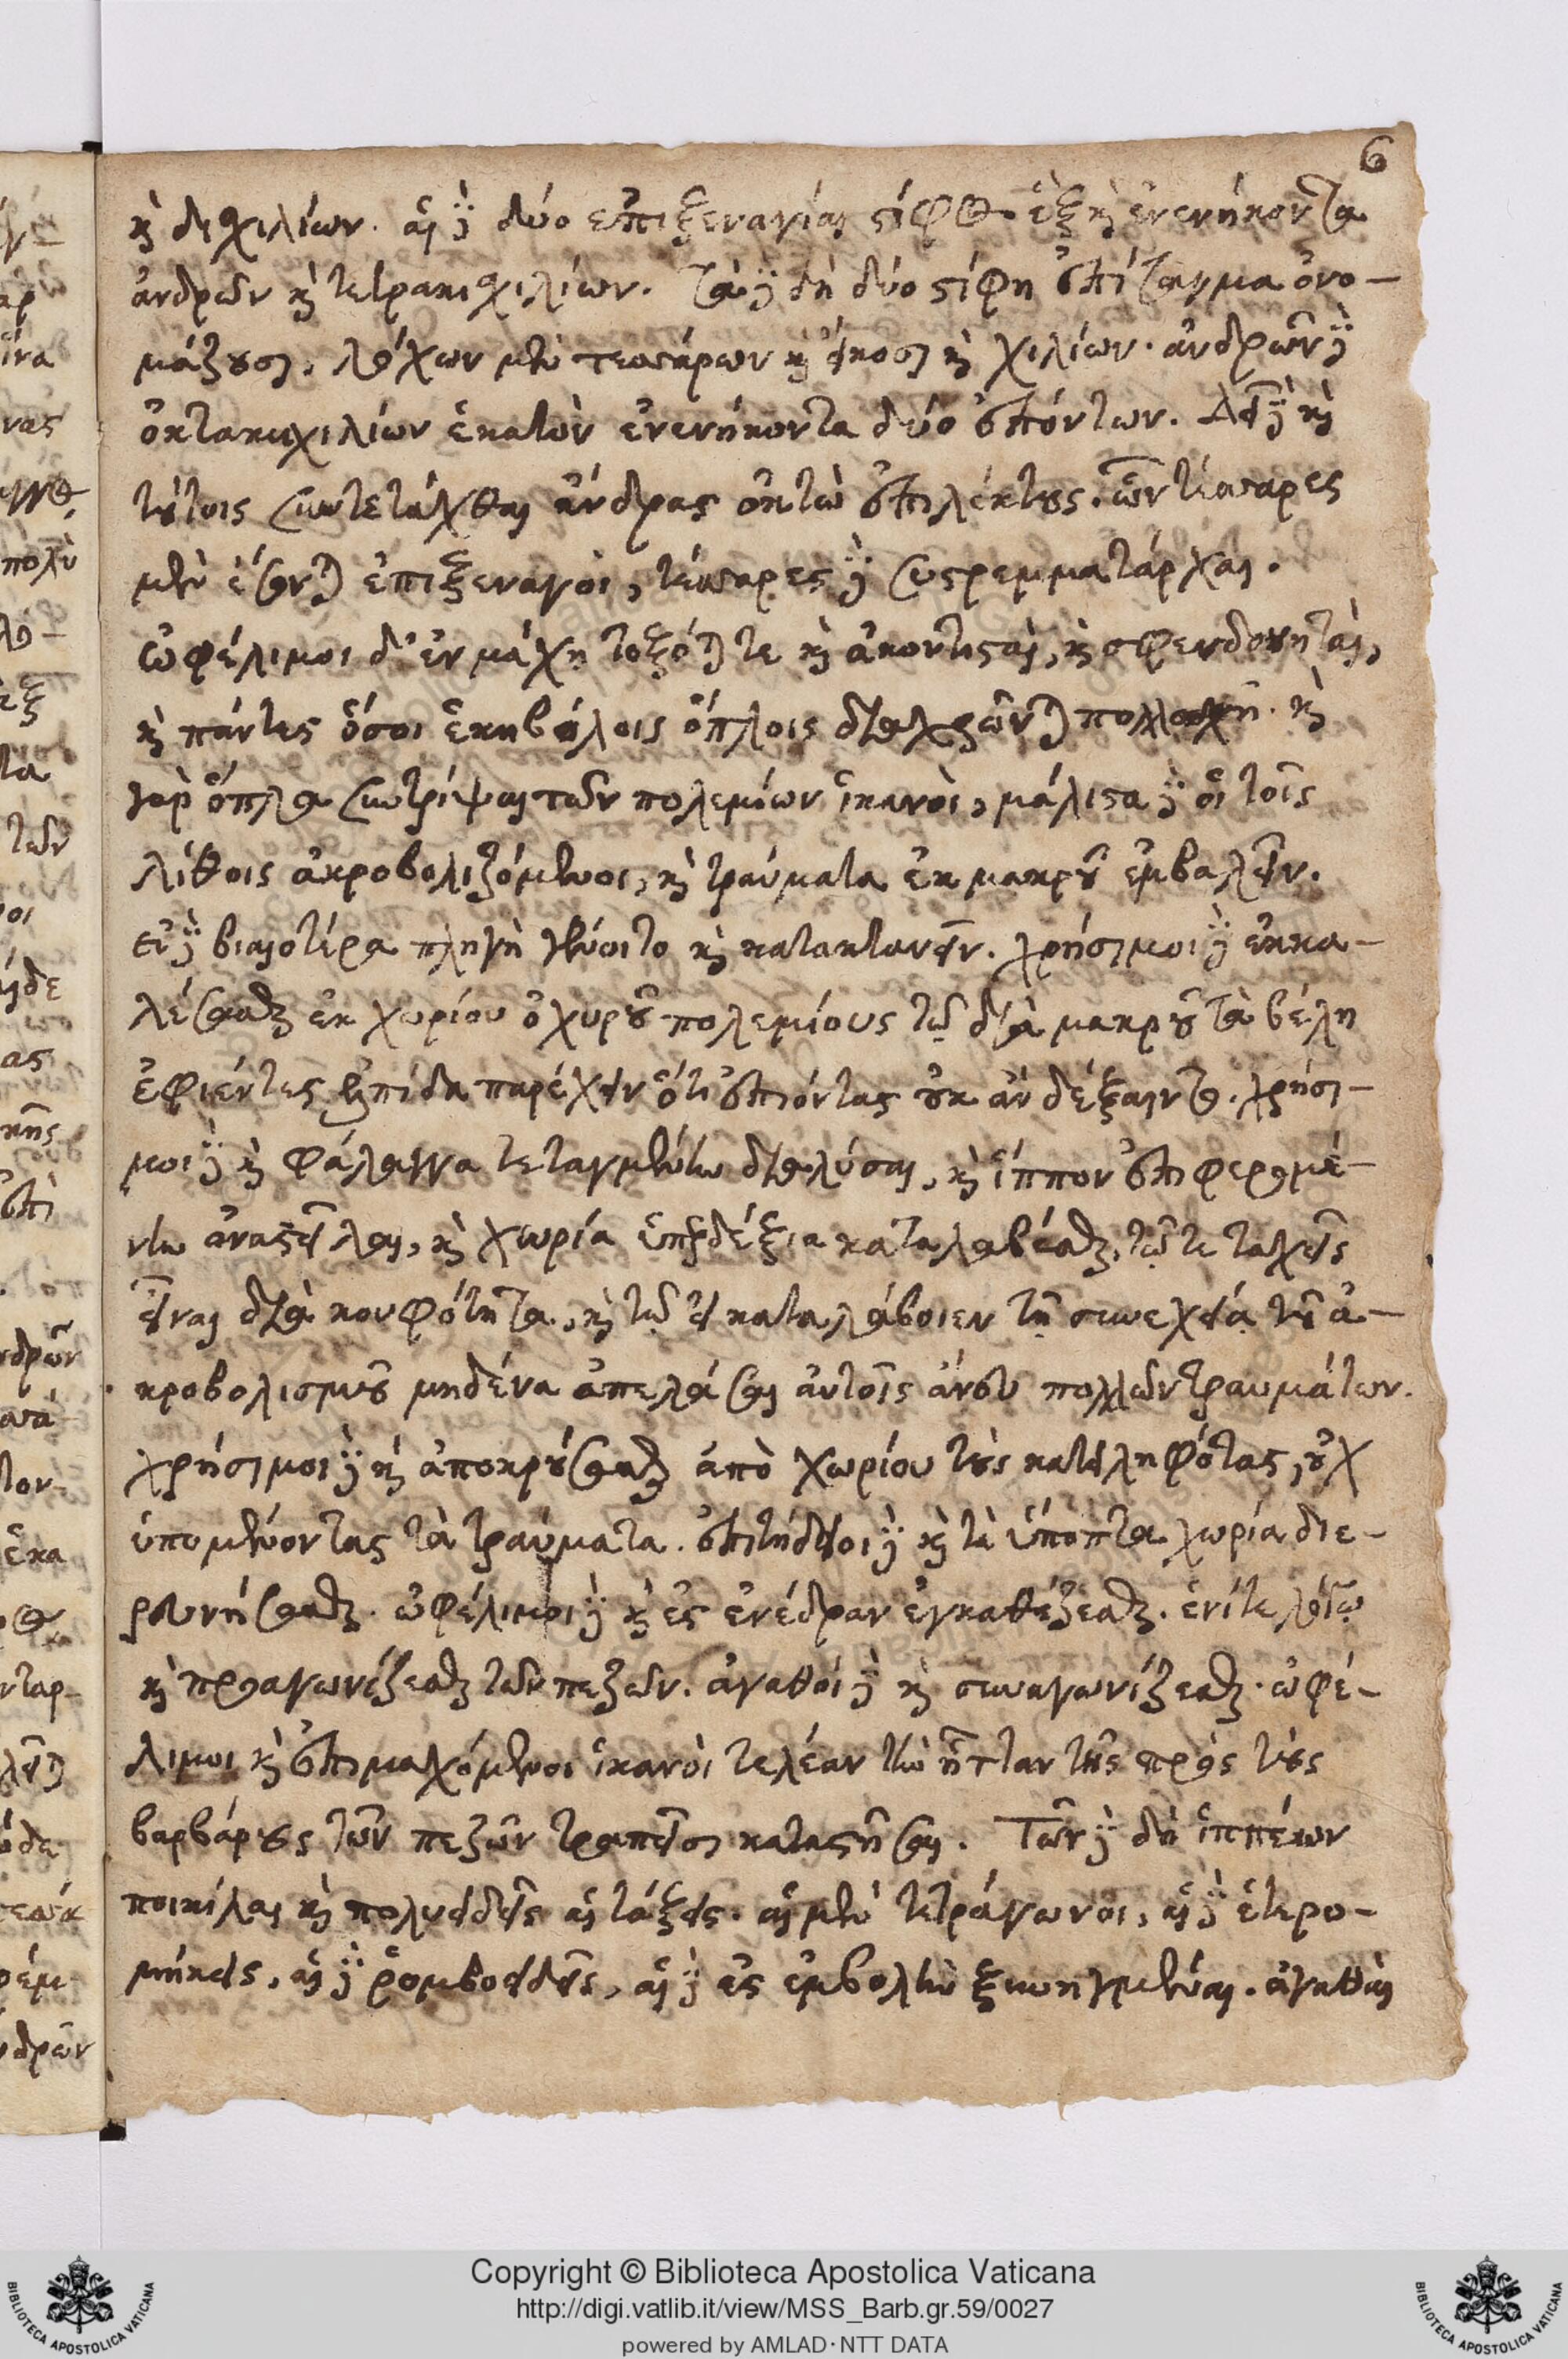 6
καὶ δισχιλίων. αἱ δὲ δύο ἐπιξεναγίαι στίφος ἓξ καὶ ἐνενήκοντα
ἀνδρῶν καὶ τετρακισχιλίων. τὰ δὲ δὴ δύο στίφη ἐπίταγμα ὀνο-
μάζουσι. λόχων μὲν τεσσάρων καὶ εἴκοσι καὶ χιλίων. ἀνδρῶν δὲ
ὀκτακισχιλίων ἑκατὸν ἐνενήκοντα δύο ἐπόντων. δεῖ δὲ καὶ
τούτοις συντετάχθαι ἄνδρας ὀκτὼ ἐπιλέκτους. ὧν τέσσαρες
μὲν ἔσονται ἐπιξεναγοὶ, τέσσαρες δὲ συστρεμματάρχαι.
ὠφέλιμοι δ' ἐν μάχῃ τοξόται τε καὶ ἀκοντισταὶ, καὶ σφενδονηταὶ,
καὶ πάντες ὅσοι ἑκηβόλοις ὅπλοις διαχρῶνται πολλαχῆ. καὶ
γὰρ ὅπλα συντρίψαι τῶν πολεμίων ἱκανοὶ, μάλιστα δὲ οἱ τοῖς
λίθοις ἀκροβολιζόμενοι, καὶ τραύματα ἐκ μακροῦ ἐμβαλεῖν.
εἰ δὲ βιαιοτέρα πληγὴ γένοιτο καὶ κατακτανεῖν. χρήσιμοι δὲ ἐκκα-
λέσασθαι ἐκ χωρίου ὀχυροῦ πολεμίους τῷ διὰ μακροῦ τὰ βέλη
ἐφιέντες ἐλπίδα παρέχειν ὅτι ἐπιόντας οὐκ ἂν δέξαιντο. χρήσι-
μοι δὲ καὶ φάλαγγα τεταγμένην διαλύσαι, καὶ ἵππον ἐπιφερομέ-
νην ἀναστεῖλαι, καὶ χωρία ὑπερδέξια καταλαβέσθαι, τῷ τε ταχεῖς
εἶναι διὰ κουφότητα, καὶ τῷ εἰ καταλάβοιεν τῇ συνεχείᾳ τοῦ ἀ-
κροβολισμοῦ μηδένα ἀπελάσαι αὐτοῖς ἄνευ πολλῶν τραυμάτων.
χρήσιμοι δὲ καὶ ἀποκρούσασθαι ἀπὸ χωρίου τοὺς κατειληφότας, οὐχ
ὑπομένοντας τὰ τραύματα. ἐπιτήδειοι δὲ καὶ τὰ ὕποπτα χωρία διε-
ρευνήσασθαι. ὠφέλιμοι δὲ καὶ ἐς ἐνέδραν ἐγκαθέζεσθαι. ἑνί τε λόγῳ
καὶ προαγωνίζεσθαι τῶν πεζῶν. ἀγαθοὶ δὲ καὶ συναγωνίζεσθαι. ὠφέ-
λιμοι καὶ ἐπιμαχόμενοι ἱκανοὶ τελέαν τὴν ἧτταν τῆς πρὸς τοὺς
βαρβάρους τῶν πεζῶν τραπεῖσι καταστῆσαι. Τῶν δὲ δὴ ἱππέων
ποικίλαι καὶ πολυειδεῖς αἱ τάξεις. αἱ μὲν τετράγωνοι, αἱ δὲ ἑτερο-
μήκεις, αἱ δὲ ῥομβοειδεῖς, αἱ δὲ ἐς ἐμβολὴν ξυνηγμέναι. ἀγαθαὶ
Copyright © Biblioteca Apostolica Vaticana
http://digi.vatlib.it/view/MSS_Barb.gr.59/0027
powered by AMLAD·NTT DATA
BIBLIOTECA APOSTOLICA VATICANA
BIBLIOTECA APOSTOLICA VATICANA